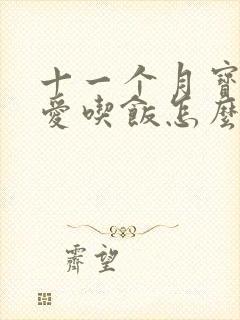 十一个月寶
愛喫飯怎麼
霽望